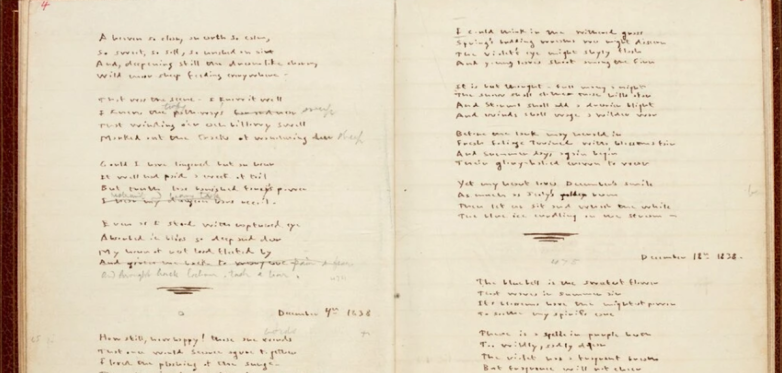 4
A heaven so clear, an earth so calm,
So sweet, so soft, so hushed an air
And, deepening still the dreamlike charm,
Wild moor sheep feeding everywhere -
That was the scene - I knew it well
I knew the path-ways
That winding o'er each billowy swell
Marked out the tracks of wandering deer
Could I have lingered but an hour
It well had paid a week of toil
But truth has banished fancy's power
I hear my dungeon bars recoil -
Even as I stood with raptured eye
Absorbed in bliss so deep and dear
My hour of rest had fleeted by
And given me back to
December 1838
How still, how happy! those are words
That once would scarce agree together
I loved the plashing of the surge -
I could think in the withered grass
Spring's budding wreaths we might discern
The violet's eye might shyly flash
And young leaves shoot among the fern
It is but thought - full many a night
The snow shall clothe those hills afar
And storms shall add a drearier blight
And winds shall wage a wilder war
Before the lark may herald in
Fresh foliage twined with blossoms fair
And summer days again begin
Their glory-haloed crown to wear
Yet my heart loves December's smile
As much as July's golden beam
Then let us sit and watch the while
The blue ice curdling on the stream -
December 18th 1838.
The bluebell is the sweetest flower
That waves in summer air
Its blossoms have the mightiest power
To soothe my spirit's care
There is a spell in purple heath
Too wildly, sadly dear
The violet has a fragrant breath
But fragrance will not cheer